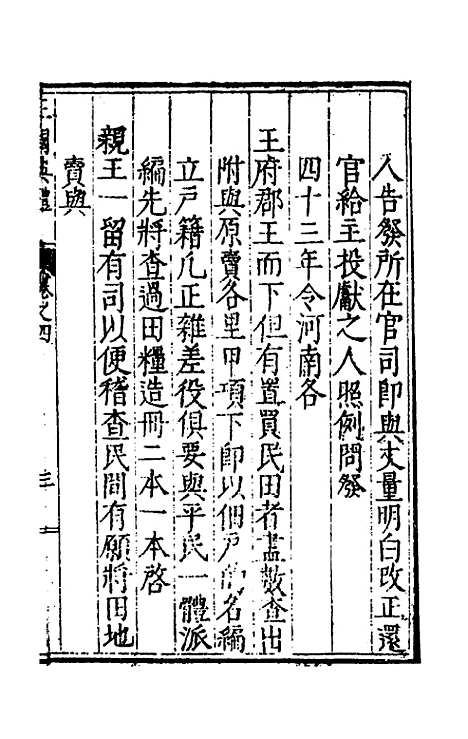 人告發所在官司即與丈量明白改正還
官給主投獻之人照例問發
四十三年令河南各
王府郡王而下但有置買民田者盡數查出
附與原賣各里甲項下即以佃戶的名編
立戶籍凡正雜差役俱要與平民一體派
編先將查過田糧造冊二本一本啓
親王一留有司以便稽查民間有願將田地
賣與
王國典禮 卷之四 三